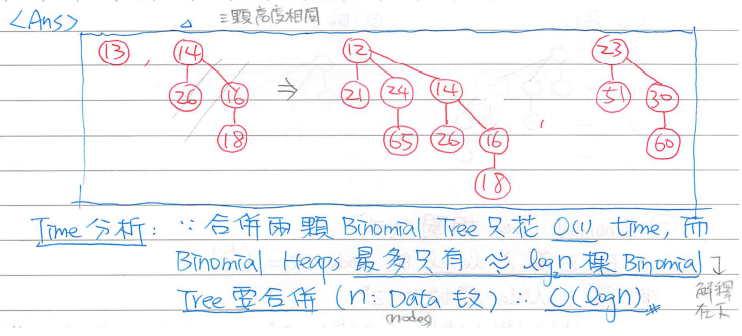 <Ans>
△ 三顆高度相同
13 , 14 ⇒ 12 , 23
26 16 21 24 14 51 30
18 65 26 16 60
18
Time 分析: ∵ 合併兩顆 Binomial Tree 只花 O(1) time, 而
Binomial Heaps 最多只有 ≈ logn 棵 Binomial
Tree 要合併 (n: Data 數) ∴ O(logn)※
(nodes)
↓
解釋
在下